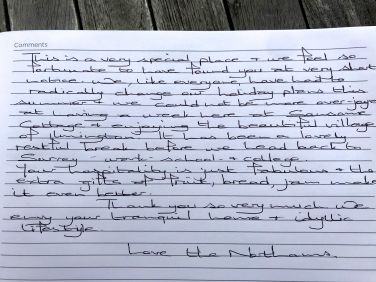 Comments
This is a very special place + we feel so
fortunate to have found you at very short
notice. We like everyone, have had to
radically change our holiday plans this
summer + we could not be more over-joyed
at having a week here at
Cottage + enjoying the beautiful village
of It has been a lovely
restful break before we head back to
Surrey work - school - + college.
Your hospitality is just fabulous + the
extra gifts of fruit, bread, jam make
it even better.
Thank you so very much we
envy your tranquil home + idyllic
lifestyle.
Love the